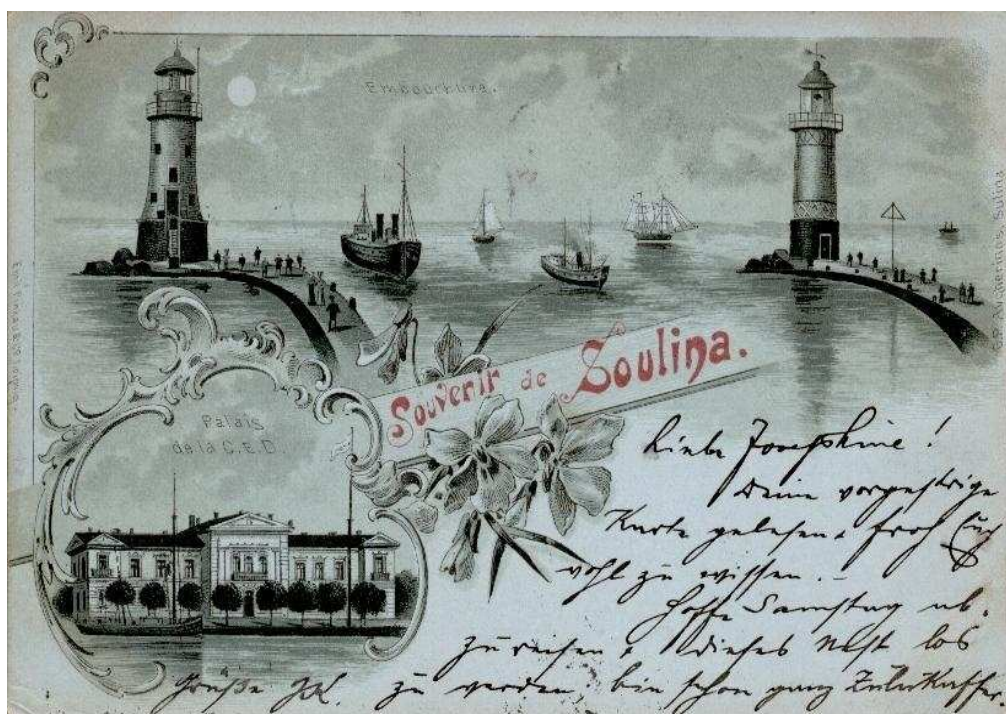 Embouchure.
Souvenir de Soulina.
Palais
de la C.E.D
Liebe Josephine!
Deine vorgestrige
Karte gelesen, froh Euch
wohl zu wissen. –
Hoffe Samstag ab-
zureisen & dieses Nest los
zu werden, bin schon ganz Zulukaffer
Grüße